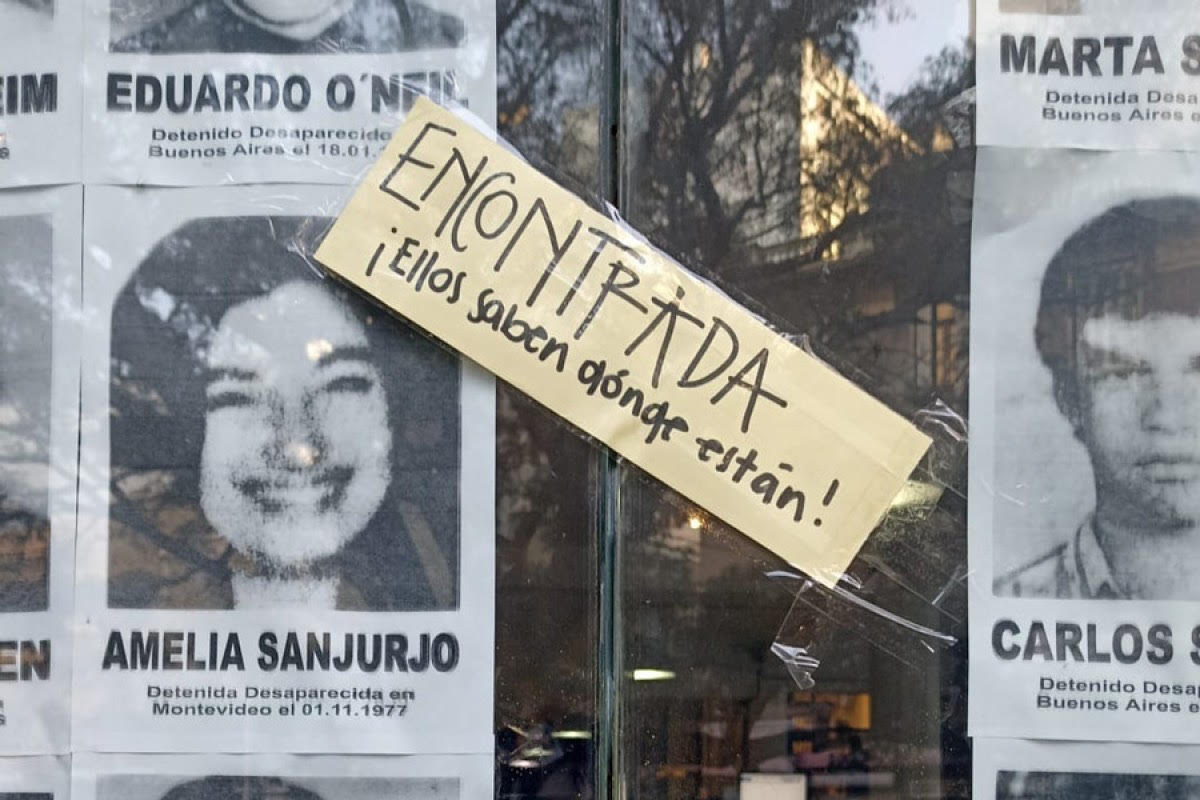 EIM
EDUARDO O´NEIL
Detenido Desaparecido
Buenos Aires el 18.01.
MARTA S
Detenida Desa
Buenos Aires e
ENCONTRADA
¡Ellos saben dónde están!
EN
AMELIA SANJURJO
Detenida Desaparecida en
Montevideo el 01.11.1977
CARLOS S
Detenido Desa
Buenos Aires e